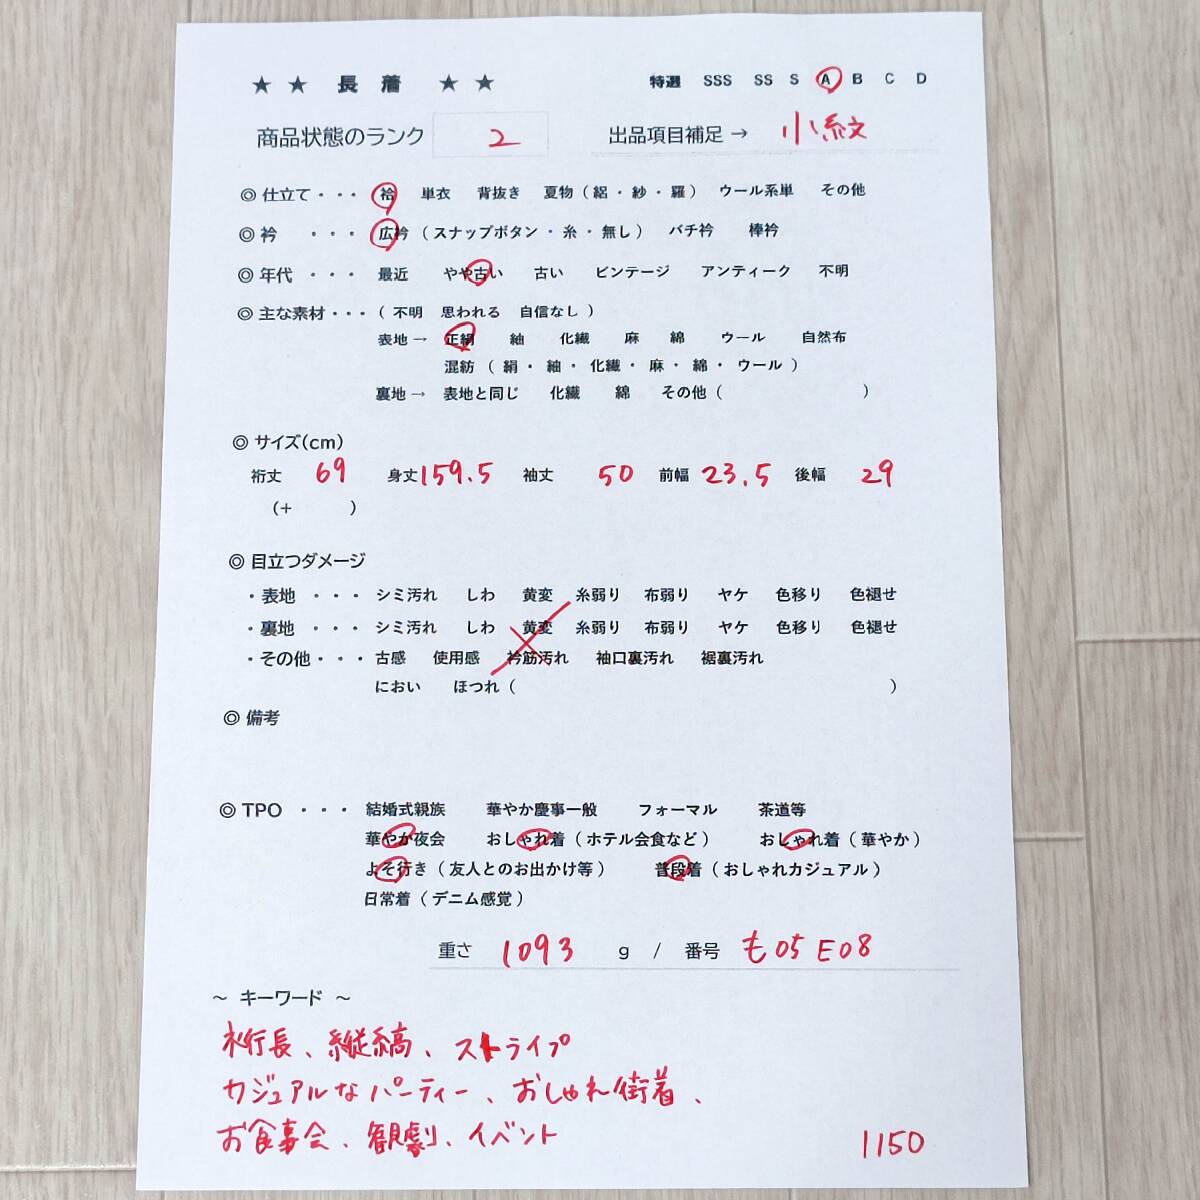 ★ ★ 長 着 ★ ★ 特選 SSS SS S A B C D
商品状態のランク 2 出品項目補足 → 小紋
◎ 仕立て・・・ 袷 単衣 背抜き 夏物 ( 絽 ・ 紗 ・ 羅 ) ウール系単 その他
◎ 衿 ・・・ 広衿 ( スナップボタン ・ 糸 ・ 無し ) バチ衿 棒衿
◎ 年代 ・・・ 最近 やや古い 古い ビンテージ アンティーク 不明
◎ 主な素材・・・ ( 不明 思われる 自信なし )
表地 → 正絹 紬 化繊 麻 綿 ウール 自然布
混紡 ( 絹 ・ 紬 ・ 化繊 ・ 麻 ・ 綿 ・ ウール )
裏地 → 表地と同じ 化繊 綿 その他 ( )
◎ サイズ(cm)
裄丈 69 身丈 159.5 袖丈 50 前幅 23.5 後幅 29
(+ )
◎ 目立つダメージ
・表地 ・・・ シミ汚れ しわ 黄変 糸弱り 布弱り ヤケ 色移り 色褪せ
・裏地 ・・・ シミ汚れ しわ 黄変 糸弱り 布弱り ヤケ 色移り 色褪せ
・その他・・・ 古感 使用感 衿筋汚れ 袖口裏汚れ 裾裏汚れ
におい ほつれ ( )
◎ 備考
◎ TPO ・・・ 結婚式親族 華やか慶事一般 フォーマル 茶道等
華やか夜会 おしゃれ着 ( ホテル会食など ) おしゃれ着 ( 華やか )
よそ行き ( 友人とのお出かけ等 ) 普段着 ( おしゃれカジュアル )
日常着 ( デニム感覚 )
重さ 1093 g / 番号 も05E08
～ キーワード ～
裄長、縦縞、ストライプ
カジュアルなパーティー、おしゃれ街着、
お食事会、観劇、イベント
1150